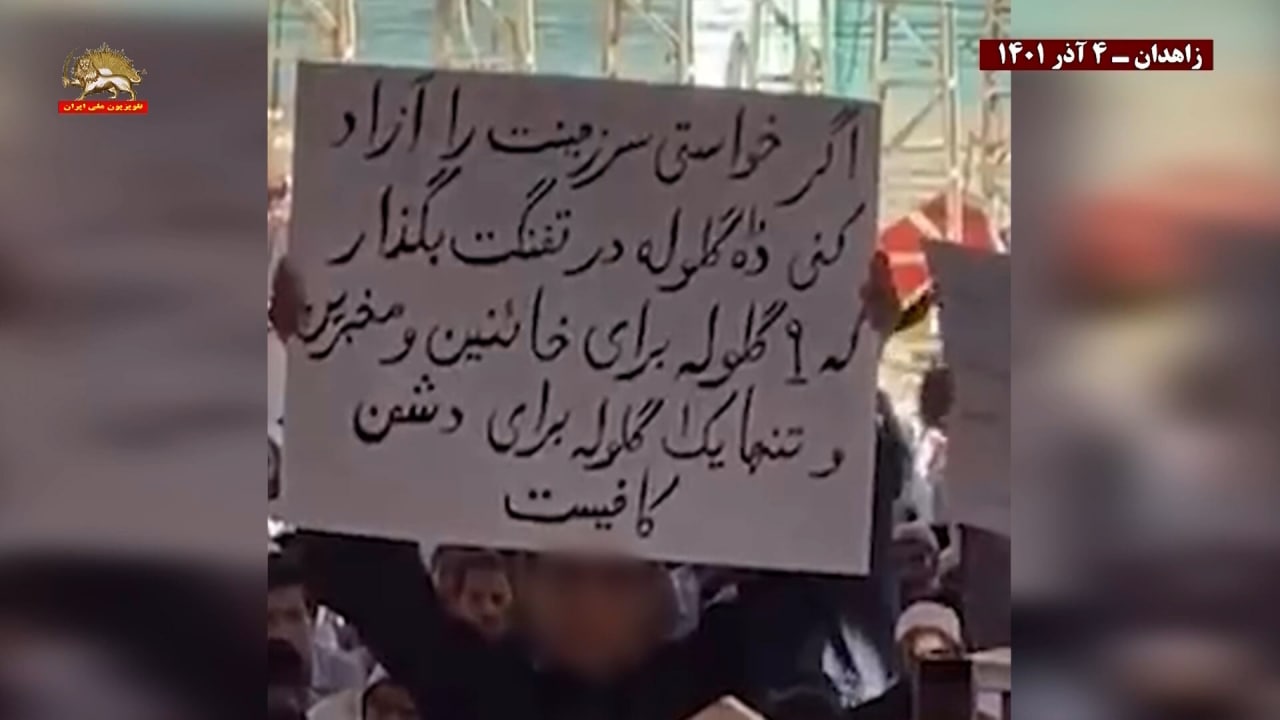 تلویزیون ملی ایران
زاهدان ــ ۴ آذر ۱۴۰۱
اگر خواستی سرزمینت را آزاد
کنی ده گلوله در تفنگت بگذار
که ۹ گلوله برای خائنین و مخبرین
و تنها یک گلوله برای دشمن
کافیست